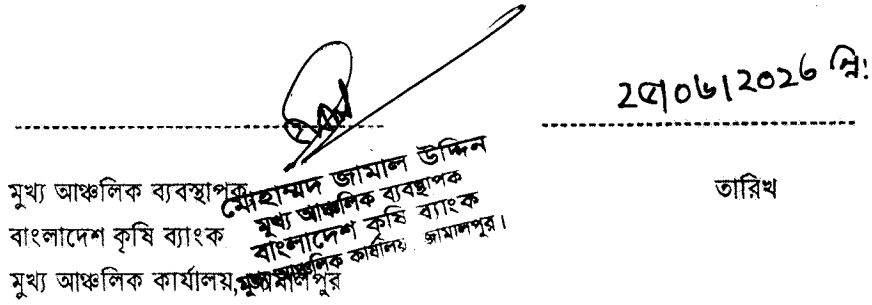 ২৫/০৬/২০২৬ খ্রি:
মুখ্য আঞ্চলিক ব্যবস্থাপক
তারিখ
বাংলাদেশ কৃষি ব্যাংক
মুখ্য আঞ্চলিক কার্যালয়, জামালপুর
মোহাম্মদ জামাল উদ্দিন
মুখ্য আঞ্চলিক ব্যবস্থাপক
বাংলাদেশ কৃষি ব্যাংক
মুখ্য আঞ্চলিক কার্যালয় জামালপুর।